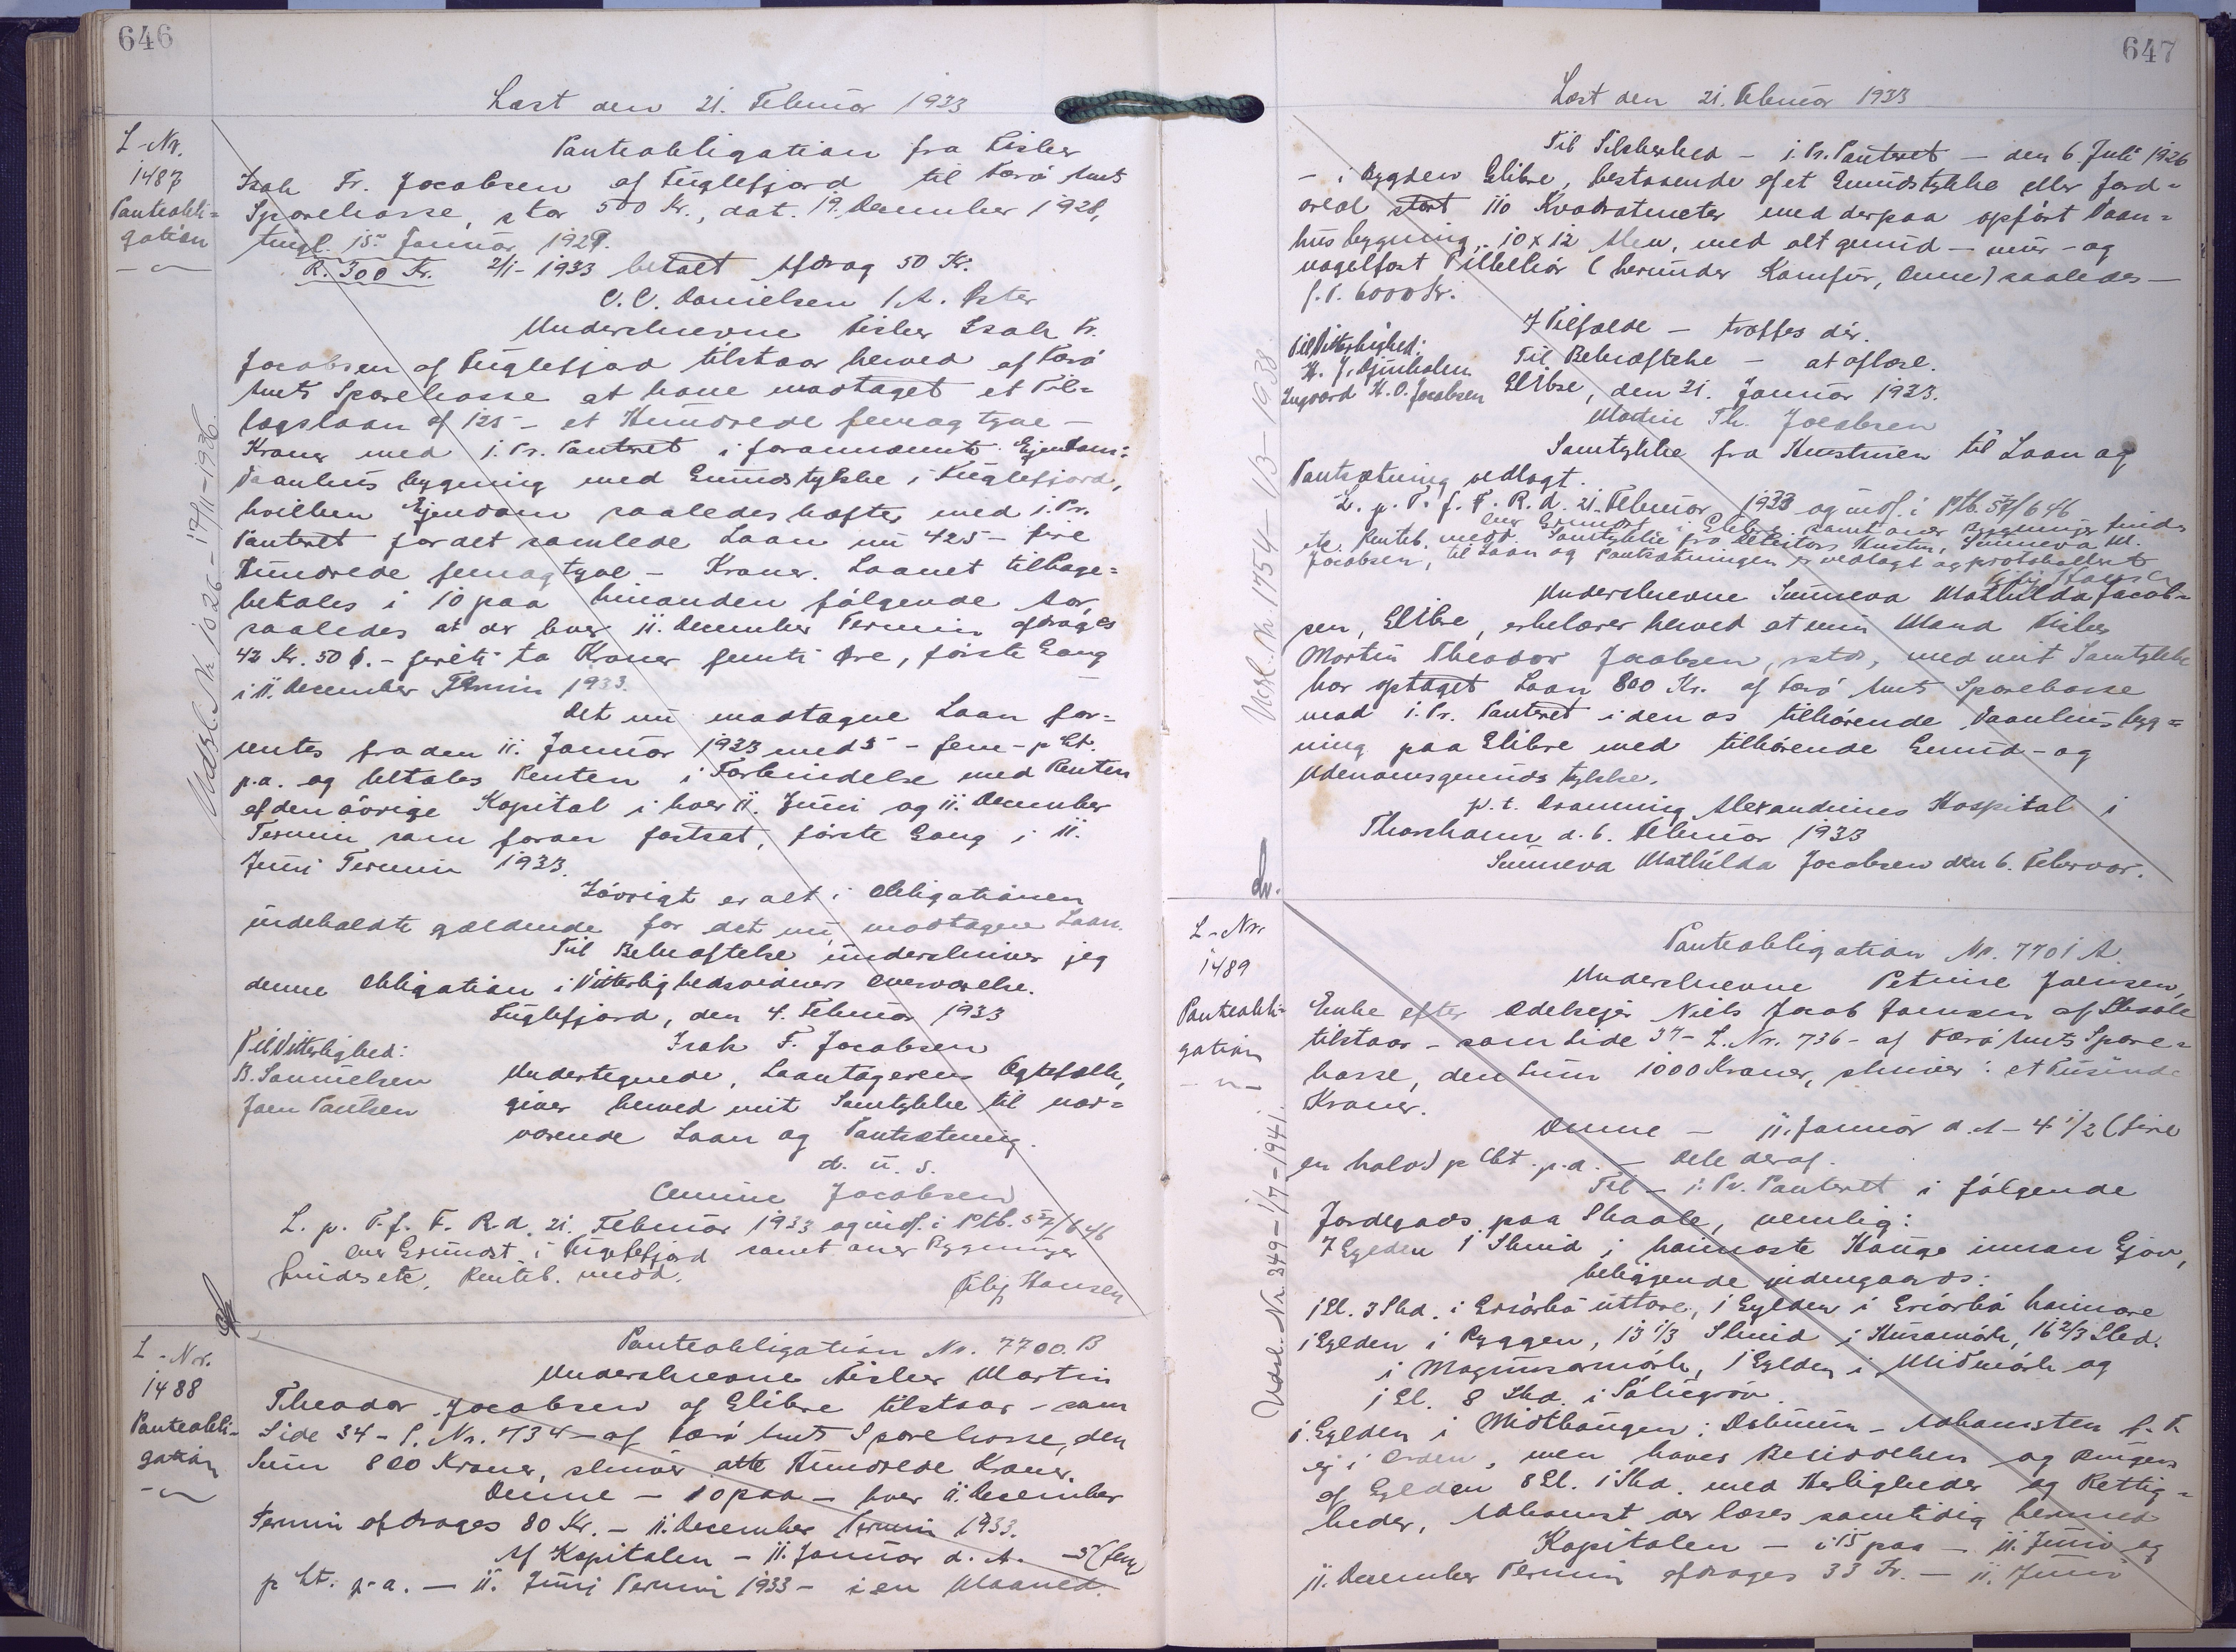 646
Læst den 21. Februar 1933
L-Nr.
1487
Panteobli-
gation
Panteobligation fra Fisker
Isak Fr. Jacobsen af Fuglefjord til Færø Amts
Sparekasse, stor 500 Kr., dat. 19. December 1928,
tingl. 15. Januar 1929.
R. 300 Kr. 2/1-1933 betalt Afdrag 50 Kr.
C. C. Danielsen /A. Ister
Underskrevne Fisker Isak Fr.
Jacobsen af Fuglefjord tilstaar herved af Færø
Amts Sparekasse at have modtaget et Til-
lægslaan af 125 – et Hundrede femogtyve –
Kroner med 1. Pr. Panteret i forannævnte Ejendom:
Vaanhusbygning med Grundstykke i Fuglefjord,
hvilken Ejendom saaledes hæfter med 1. Pr.
Panteret for det samlede Laan nu 425 – fire
Hundrede femogtyve – Kroner. Laanet tilbage-
betales i 10 paa hinanden følgende Aar,
saaledes at der hver 11. December Termin afdrages
42 Kr. 50 Ø. – firti to Kroner femti Øre, første Gang
i 11. December Termin 1933.
Det nu modtagne Laan for-
rentes fra den 11. Januar 1933 med 5 – fem – p Ct.
p.a. og betales Renten i Forbindelse med Renten
af den øvrige Kapital i hver 11. Juni og 11. December
Termin som foran fastsat, første Gang i 11.
Juni Termin 1933.
Iøvrigt er alt i Obligationen
indeholdte gældende for det nu modtagne Laan.
Til Bekræftelse underskriver jeg
denne Obligation i Vitterlighedsvidners Overværelse.
Fuglefjord, den 4. Februar 1933
Isak F. Jacobsen
Til Vitterlighed:
B. Samuelsen
Joen Poulsen
Undertegnede, Laantagerens Ægtefælle,
giver herved mit Samtykke til nær-
værende Laan og Pantsætning.
d. u. s.
Jacobsen
L. p. T. f. F. R. d. 21. Februar 1933 og indf. i Ptb. 57/646
Grundst. i Fuglefjord samt over Bygninger
findes etc. Renteb. medd.
Filip Hansen
Udsl. Nr 1026 – 17/11 – 1936.
L-Nr.
1488
Panteobli-
gation
Panteobligation Nr. 7700. B
Underskrevne Fisker Martin
Theodor Jacobsen af Elibre tilstaar – som
Side 34 – L. Nr. 734 – af Færø Amts Sparekasse, den
Sum 800 Kroner, skriver otte Hundrede Kroner.
Denne – 10 paa – hver 11. December
Termin afdrages 80 Kr. – 11. December Termin 1933.
Af Kapitalen – 11. Januar d. A. – 5 (fem)
p Ct. p.a. – 11. Juni Termin 1933 – i en Maaned.
647
Læst den 21. Februar 1933
Til Sikkerhed – 1. Pr. Panteret – den 6. Juli 1926
– i Bygden Elibre, bestaaende af et Grundstykke eller Jord-
areal stort 110 Kvadratmeter med derpaa opført Vaan-
husbygning, 10 x 12 Alen, med alt grund – mur – og
nagelfast Tilbehør (herunder Komfur, Ovne) saaledes –
f. T. 6000 Kr.
I Tilfælde – træffes dér.
Til Vitterlighed:
H. J. Djurholm
Ingvard H. O. Jacobsen
Til Bekræftelse – at aflæse.
Elibre, den 21. Januar 1933.
Martin Th. Jacobsen
Samtykke fra Hustruen til Laan og
Pantsætning vedlagt.
L. p. T. f. F. R. d. 21. Februar 1933 og indf. i Ptb. 57/646
Grundst. i Elibre samt over Bygninger findes
etc. Renteb. medd. Samtykke fra Debitors Hustru, Sunneva M.
Jacobsen, til Laan og Pantsætningen er vedlagt og protokolleret
Filip Hansen
Underskrevne Sunneva Mathilda Jacob-
sen, Elibre, erklærer herved at min Mand Fisker
Martin Theodor Jacobsen, sstds, med mit Samtykke
har optaget Laan 800 Kr. af Færø Amts Sparekasse
mod 1. Pr. Panteret i den os tilhørende Vaanhusbyg-
ning paa Elibre med tilhørende Grund – og
Udenomsgrundstykke.
p. t. Dronning Alexandrines Hospital i
Thorshavn d. 6. Februar 1933
Sunneva Mathilda Jacobsen den 6. Februar.
Udsl. Nr. 1754 – 1/3 – 1938.
L-Nr.
1489
Panteobli-
gation
Panteobligation Nr. 7701 A.
Underskrevne Petrine Joensen,
Enke efter Odelsejer Niels Jacob Joensen af Skaale
tilstaar – som Side 37 – L. Nr. 736 – af Færø Amts Spare-
kasse, den Sum 1000 Kroner, skriver: et Tusinde
Kroner.
Denne – 11. Januar d. A – 4 1/2 (fire
en halv) p Ct. p.a. – Dele deraf.
Til – 1. Pr. Panteret i følgende
Jordegods paa Skaale, nemlig:
7 Gylden 1 Skind i heimaste Hauge innan Gjov,
beliggende indengaards:
1 Gl. 3 Skd. i Griørbø uttare, 1 Gylden i Griørbø heimare
1 Gylden i Ryggen, 13 1/3 Skind i Husamørk, 16 2/3 Skd.
i Magnusarmørk, 1 Gylden i Miðmørk og
1 Gl. 8 Skd. i
1 Gylden i Miðthaugen: – Adkomsten f. T.
ej i Orden, men haves Besiddelsen og Brugen
af Gylden 8 Gl. 1 Skd. med Herligheder og Rettig-
heder, Adkomst der læses samtidig hermed
Kapitalen – i 15 paa – 11. Juni og
11. December Termin afdrages 33 Kr. – 11. Juni
Udsl. Nr. 349 – 1/7 – 1941.